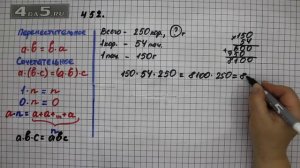 4 5 2.
Переместительное
a·b = b·a
Сочетательное
a·(b·c)=(a·b)·c
1·n = n
0·n = 0
a·n = a+a+...+a
n
a·b·c = abc
Всего – 250 кор, ? г
1 кор. – 54 пач.
1 пач – 150г
×150
54
600
750
8100
150·54·250 = 8100·250 = 8